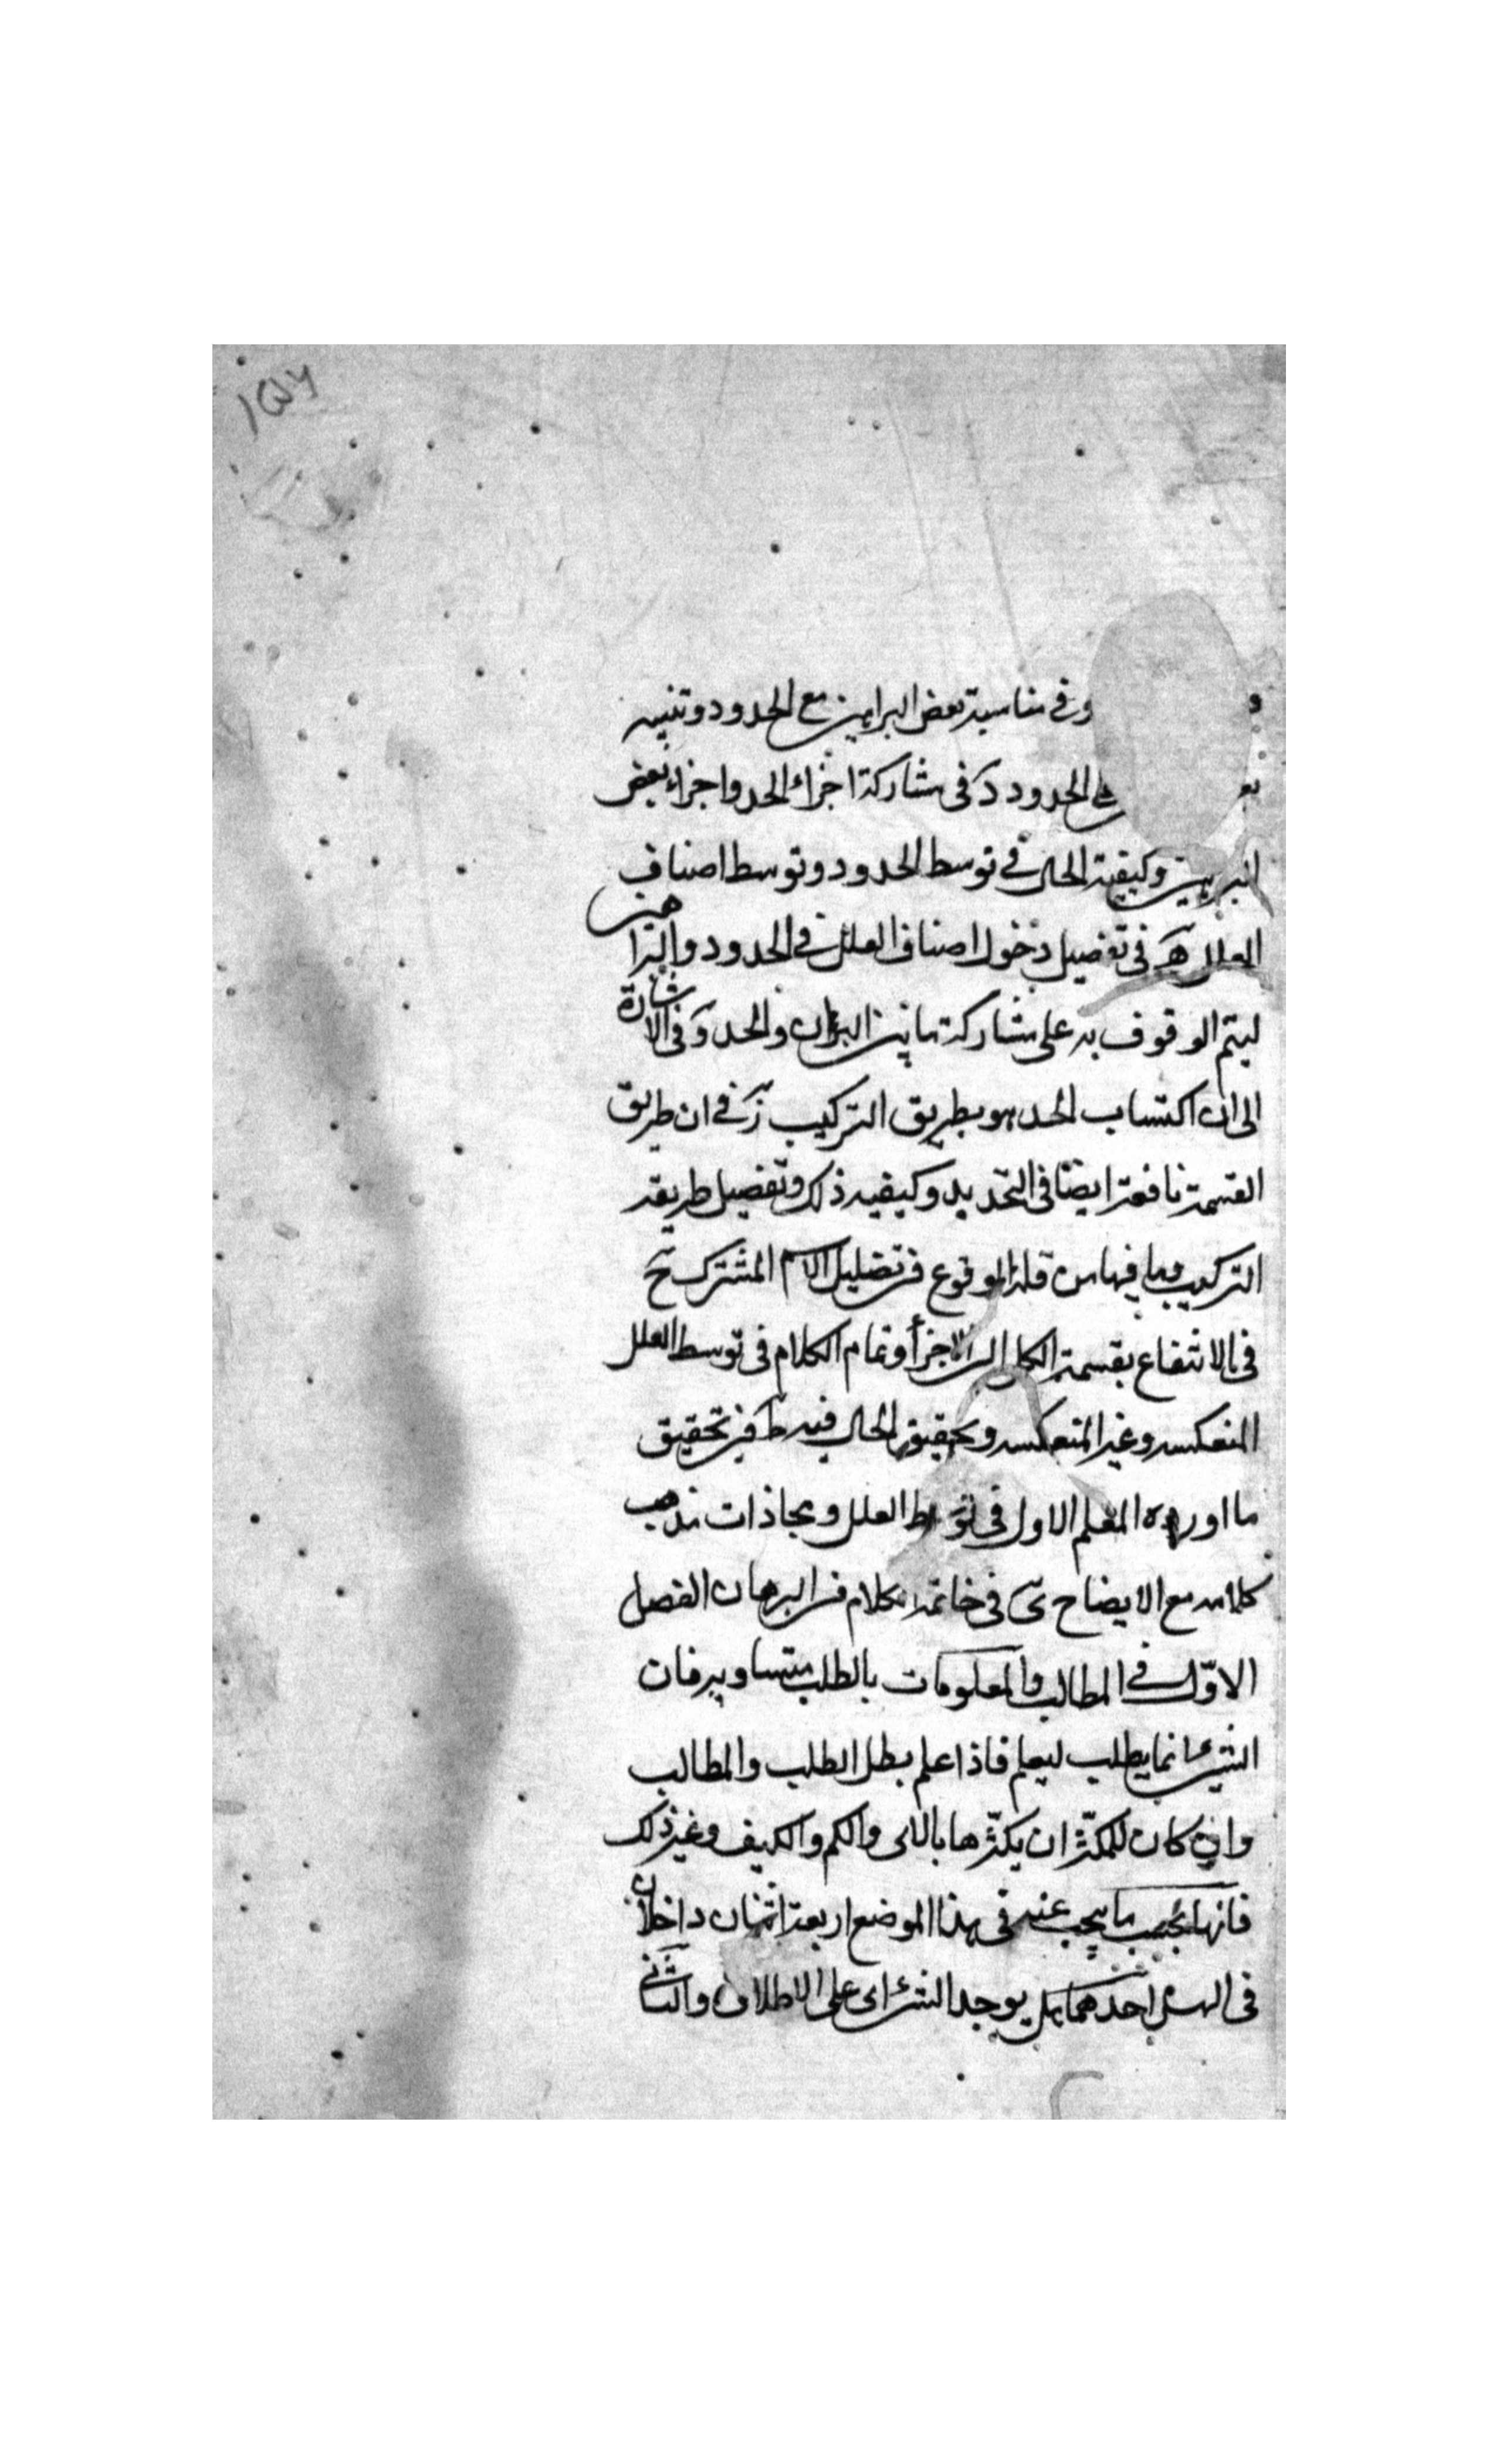 ١٥٧
و وفى مناسبة بعض البراهين مع الحدود وتنبيه
بعـ على الحدود دَ فى مشاركة اجزاء الحد واجزاء بعض
البراهين وكيفية الحال فى توسط الحدود وتوسط اصناف
العلل هَ فى تفصيل دخول اصناف العلل فى الحدود والبراهين
ليتم الوقوف به على مشاركة ما بين البرهان والحد وَ فى الاشارة
الى ان اكتساب الحد هو بطريق التركيب زَ فى ان طريق
القسمة نافعة ايضا فى التحديد وكيفيه ذلك وتفصيل طريقه
التركيب وما فيها من قلة الوقوع فى تضليل الاسم المشترك حَ
فى الانتفاع بقسمة الكل الى الاجزأ وتمام الكلام فى توسط العلل
المنعكسه وغير المنعكسه وتحقيق الحال فيه طَ فى تحقيق
ما اورده المعلم الاول فى توسط العلل ومحاذات مذهب
كلامه مع الايضاح ىَ فى خاتمة الكلام فى البرهان الفصل
الاوّل فى المطالب والمعلومات بالطلب متساويه فان
الشئ انما يطلب ليعلم فاذا علم بطل الطلب والمطالب
وان كان للمكثّر ان يكثّرها بالاى والكم والكيف وغير ذلك
فانها بحسب ما يجب عنه فى هذا الموضع اربعة اثنان داخلان
فى الهل احدهما هل يوجد الشئ اى على الاطلاق والثانى